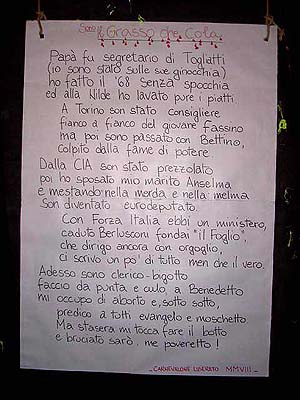 Sono il Grasso che Cola
Papà fu segretario di Togliatti
(io sono stato sulle sue ginocchia)
ho fatto il '68 senza spocchia
ed alla Nilde ho lavato pure i piatti
A Torino son stato consigliere
fianco a fianco del giovane fassino
ma poi sono passato con Bettino,
colpito dalla fame di potere.
Dalla CIA son stato prezzolato
poi ho sposato mio marito Anselma
e mestando nella merda e nella melma
son diventato eurodeputato.
Con Forza Italia ebbi un ministero,
caduto Berlusconi fondai "il Foglio",
che dirigo ancora con orgoglio,
ci scrivo un po' di tutto men che il vero.
Adesso sono clerico-bigotto
faccio da punta e culo a Benedetto
mi occupo di aborto e, sotto sotto,
predico a tutti evangelo e moschetto.
Ma stasera mi tocca fare il botto
e bruciato sarò.. me poveretto!
_ CARNEVALONE LIBERATO MMVIII _